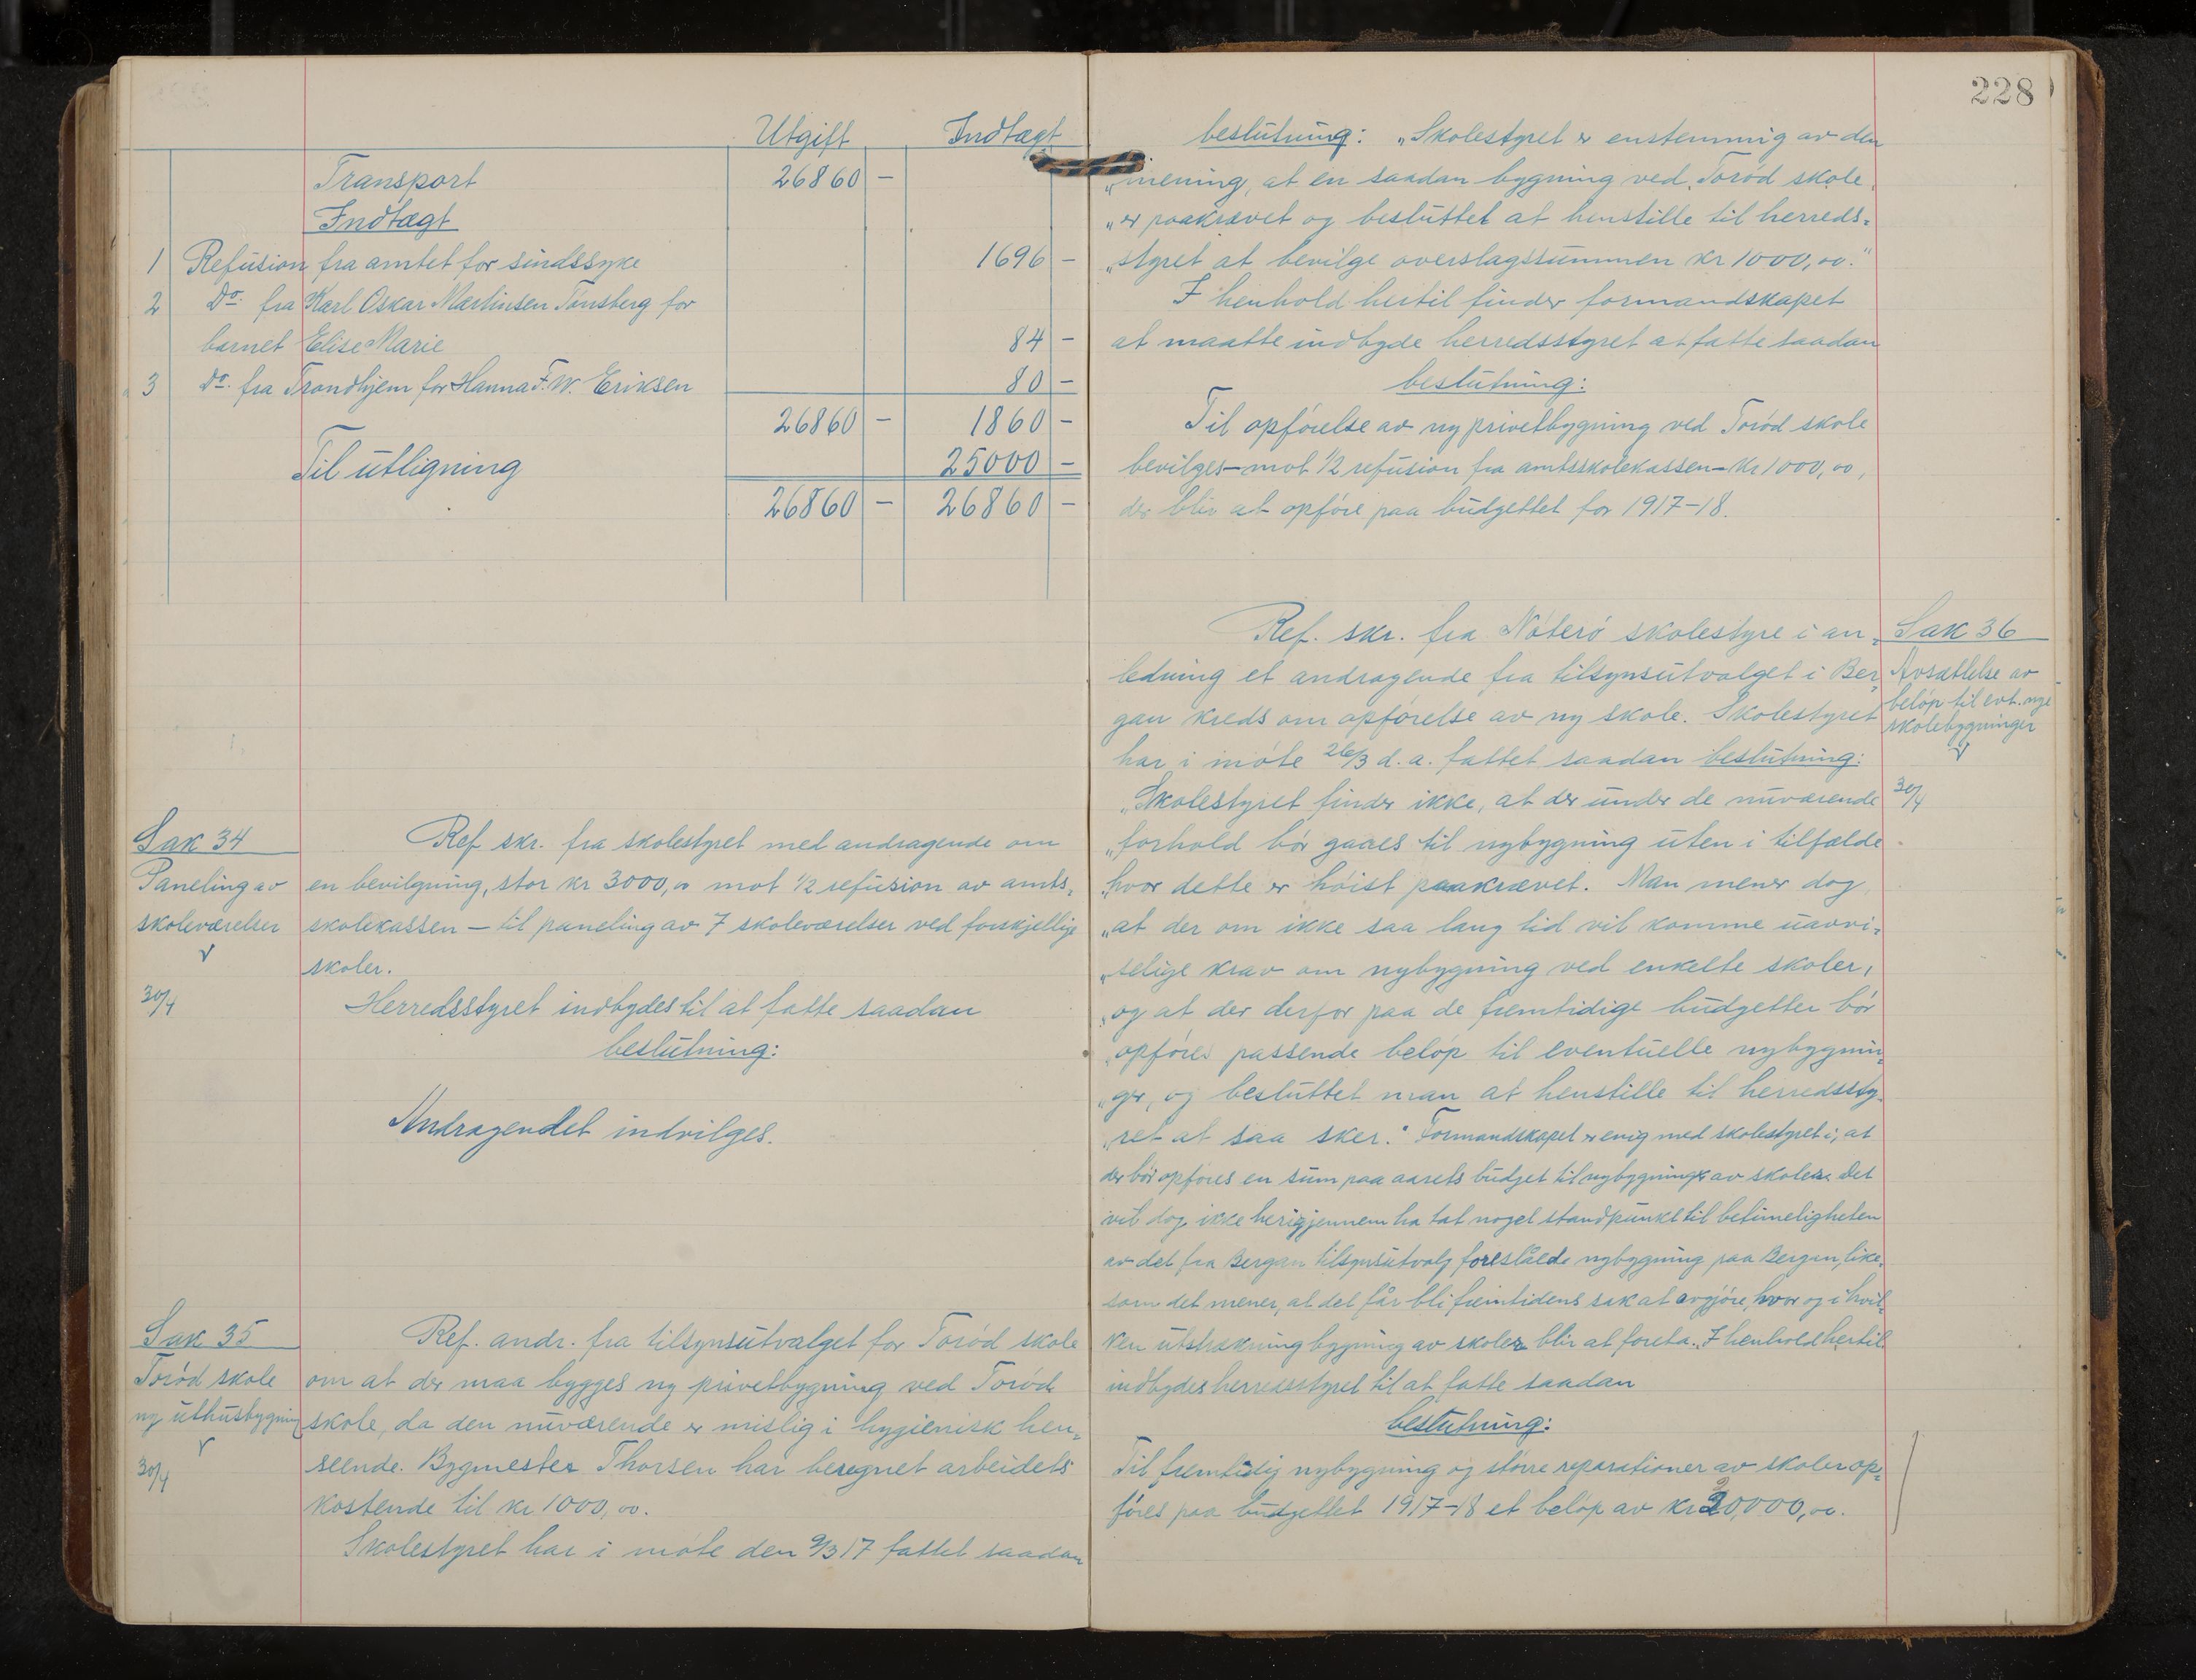 Utgift Indtægt
Transport 26860 –
Indtægt
1 Refusion fra amtet for sindssyke 1696 –
2 Do. fra Karl Oskar Martinsen Tønsberg for
barnet Elise Marie 84 –
3 Do. fra Trondhjem for Hanna F. W. Eriksen 80 –
26860 – 1860 –
Til utligning 25000 –
26860 – 26860 –
Sak 34
Paneling av
skoleværelser
30/4
Ref. skr. fra skolestyret med andragende om
en bevilgning, stor kr 3000,00 mot 1/2 refusion av amts-
skolekassen – til paneling av 7 skoleværelser ved forskjellige
skoler.
Herredsstyret indbydes til at fatte saadan
beslutning:
Andragendet indvilges.
Sak 35
Torød skole
ny uthusbygning
30/4
Ref. andr. fra tilsynsutvalget for Torød skole
om at der maa bygges ny privetbygning ved Torød
skole, da den nuværende er mislig i hygienisk hen-
seende. Bygmester Thorsen har beregnet arbeidets
kostende til kr 1000,00.
Skolestyret har i møte den 9/3 17 fattet saadan
228
beslutning: „Skolestyret er enstemmig av den
„mening, at en saadan bygning ved Torød skole
„er paakrævet og besluttet at henstille til herreds-
„styret at bevilge overslagssummen kr 1000,00."
I henhold hertil finder formandskapet
at maatte indbyde herredsstyret at fatte saadan
beslutning:
Til opførelse av ny privetbygning ved Torød skole
bevilges – mot 1/2 refusion fra amtsskolekassen – kr 1000,00,
der blir at opføre paa budgettet for 1917–18.
Sak 36
Avsættelse av
beløp til evt. nye
skolebygninger
30/4
Ref. skr. fra Nøterø skolestyre i an-
ledning et andragende fra tilsynsutvalget i Ber-
gan kreds om opførelse av ny skole. Skolestyret
har i møte 26/3 d. a. fattet saadan beslutning:
„Skolestyret finder ikke, at der under de nuværende
„forhold bør gaaes til nybygning uten i tilfælde
„hvor dette er høist paakrævet. Man mener dog
„at der om ikke saa lang tid vil komme uavvi-
„selige krav om nybygning ved enkelte skoler,
„og at der derfor paa de fremtidige budgetter bør
„opføres passende beløp til eventuelle nybygnin-
„ger, og besluttet man at henstille til herredssty-
„ret at saa sker." Formandskapet er enig med skolestyret i, at
der bør opføres en sum paa aarets budget til nybygning av skoler. Det
vil dog ikke herigjennem ha tat noget standpunkt til betimeligheten
av det fra Bergan tilsynsutvalg foreslåede nybygning paa Bergan, like-
som det mener, at det får bli fremtidens sak at avgjøre, hvor og i hvil-
ken utstrækning bygning av skoler blir at foreta. I henhold hertil
indbydes herredsstyret til at fatte saadan
beslutning:
Til fremtidig nybygning og større reparationer av skoler op-
føres paa budgettet 1917–18 et beløp av kr 20,000,00.